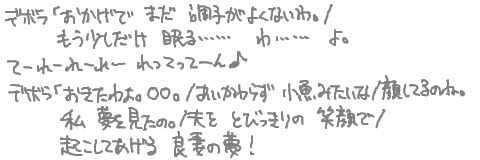 デボラ「おかげで まだ 調子がよくないわ。/
もう少しだけ 眠る…… わ…… よ。
てーれーれーれー れってってーん♪
デボラ「おきたわよ。○○。/あいかわらず 小魚みたいな/顔してるのね。
私 夢を見たの。/夫を とびっきりの 笑顔で/
起こしてあげる 良妻の夢!